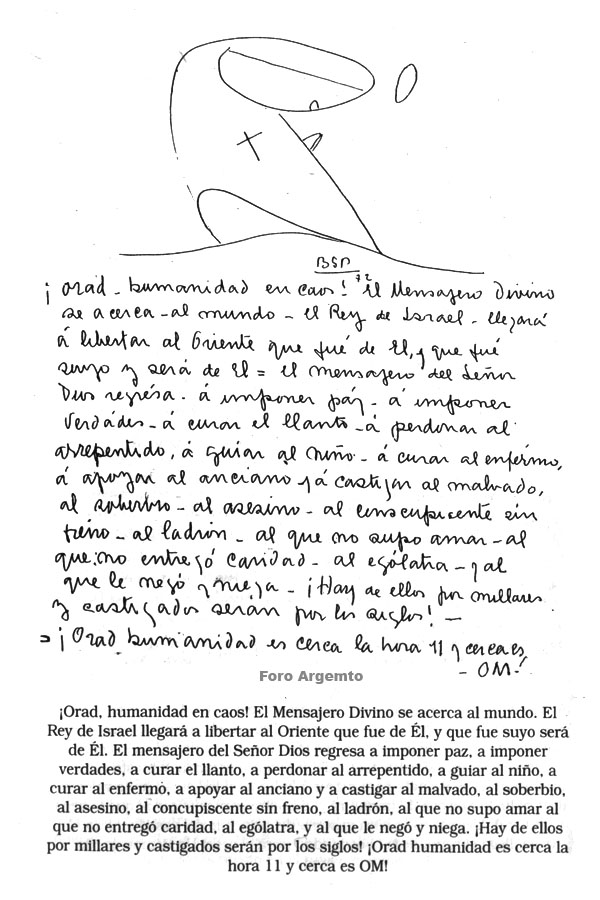 BSP
72
¡Orad - humanidad en caos! El Mensajero Divino
se acerca - al mundo - el Rey de Israel - llegará
á libertar al Oriente que fué de El, y que fué
suyo y será de El = el mensajero del Señor
Dios regrésa - á imponer páz - á imponer
Verdádes - á curar el llanto - á perdonar al
arrepentido, á guiar al niño - á curar al enfermo,
á apoyar al anciano y á castigar al malvado,
al soberbio - al asesino - al concupicente sin
freno - al ladrón - al que no supo amar - al
que no entregó caridad - al ególatra - y al
que le negó y niega - ¡Hay de ellos por millares
y castigados serán por los siglos! -
= ¡Orad humanidad es cerca la hora 11 y cerca es
- OM!
Foro Argemto
¡Orad, humanidad en caos! El Mensajero Divino se acerca al mundo. El
Rey de Israel llegará a libertar al Oriente que fue de Él, y que fue suyo será
de Él. El mensajero del Señor Dios regresa a imponer paz, a imponer
verdades, a curar el llanto, a perdonar al arrepentido, a guiar al niño, a
curar al enfermo, a apoyar al anciano y a castigar al malvado, al soberbio,
al asesino, al concupiscente sin freno, al ladrón, al que no supo amar al
que no entregó caridad, al ególatra, y al que le negó y niega. ¡Hay de ellos
por millares y castigados serán por los siglos! ¡Orad humanidad es cerca la
hora 11 y cerca es OM!